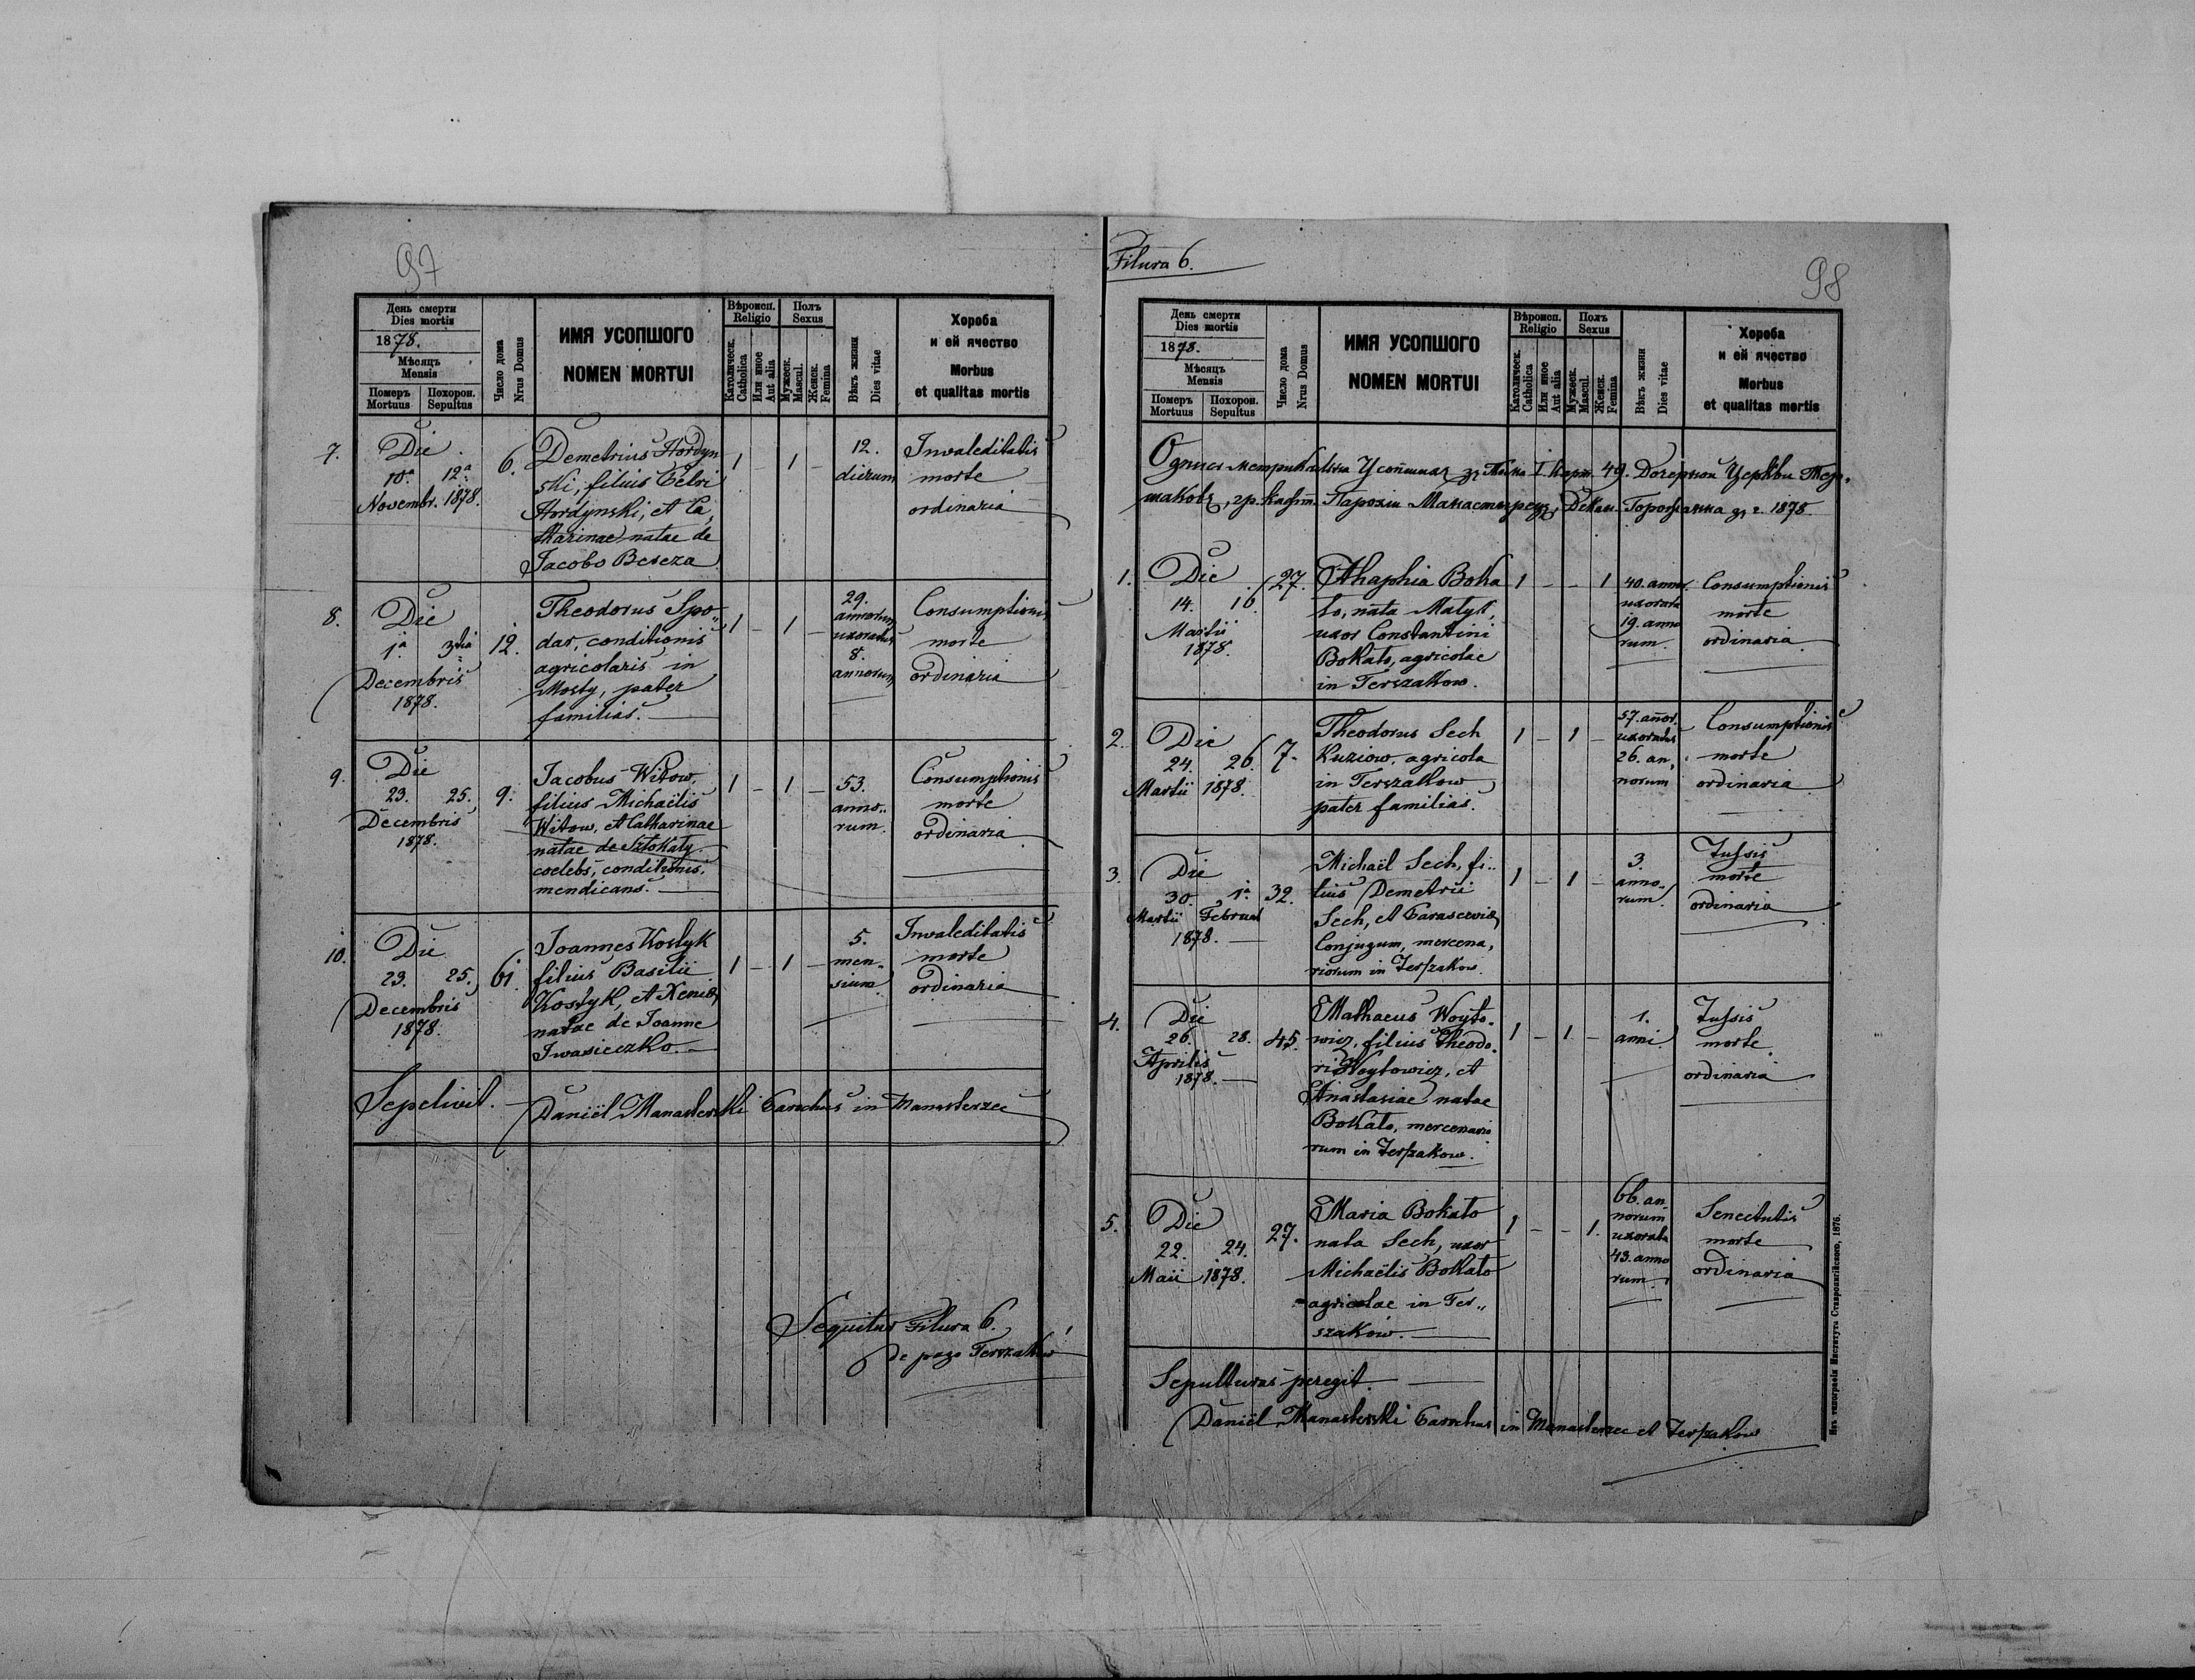 97
День смерти
Dies mortis
1878.
Мѣсяцъ
Mensis
Померъ
Mortuus
Похорон.
Sepultus
Число дома
Nrus Domus
ИМЯ УСОПШОГО
NOMEN MORTUI
Вѣроисп.
Religio
Католическ.
Catholica
Или иное
Aut alia
Полъ
Sexus
Мужеск.
Mascul.
Женск.
Femina
Вѣкъ жизни
Dies vitae
Хороба
и ей ячество
Morbus
et qualitas mortis
7. Die
10ª 12ª
Novembr. 1878.
6.
Demetrius Hordyn
ski, filius Petri
Hordynski, et Ca,
tharinae natae de
Jacobo Bereza
1 – 1 –
12.
dierum
Invaleditatis
morte
ordinaria
8. Die
1ª 3tia
Decembris
1878.
12.
Theodorus Spo„
dar, conditionis
agricolaris in
Mosty, pater
familias.
1 – 1 –
29.
annorum
uxoratus
8.
annorum
Consumptionis
morte
ordinaria
9. Die
23. 25.
Decembris
1878.
9.
Jacobus Witow,
filius Michaëlis
Witow, et Catharinae
natae de Sztokaty
coelebs, conditionis,
mendicans.
1 – 1 –
53.
anno„
rum.
Consumptionis
morte
ordinaria
10. Die
23. 25.
Decembris
1878.
61.
Joannes Kostyk
filius Basilii
Kostyk, et Xeniae
natae de Joanne
Iwasieczko.
1 – 1 –
5.
men„
sium
Invaleditatis
morte
ordinaria
Sepelivit. Daniël Manasterski Parochus in Manasterzec
Sequitur Filura 6.
de pago Terszaków
Filura 6.
98
День смерти
Dies mortis
1878.
Мѣсяцъ
Mensis
Померъ
Mortuus
Похорон.
Sepultus
Число дома
Nrus Domus
ИМЯ УСОПШОГО
NOMEN MORTUI
Вѣроисп.
Religio
Католическ.
Catholica
Или иное
Aut alia
Полъ
Sexus
Мужеск.
Mascul.
Женск.
Femina
Вѣкъ жизни
Dies vitae
Хороба
и ей ячество
Morbus
et qualitas mortis
Усопшихъ зъ Тома I. 49. Дочерной Церкви Тер„
шаковъ, гр. Парохіи Манастырецъ, Декан. зъ г. 1878.
1. Die
14. 16.
Martii
1878.
27.
Ahaphia Boka
to, nata Matyk,
uxor Constantini
Bokato, agricolae
in Terszakow.
1 – – 1
40. annor.
uxorata
19. anno
rum.
Consumptionis
morte
ordinaria
2. Die
24. 26.
Martii 1878.
7.
Theodorus Sech
Kuziow, agricola
in Terszakow
pater familias.
1 – 1 –
57. annor.
uxoratus
26. an„
norum
Consumptionis
morte
ordinaria
3. Die
30. 1ª
Martii Februar
1878.
32.
Michaël Sech, fi„
lius Demetrii
Sech, et Parasceviae
Conjugum, mercena„
riorum in Terszakow.
1 – 1 –
3.
anno„
rum
Tussis
morte
ordinaria
4. Die
26. 28.
Aprilis
1878.
45.
Mathaeus Woyto„
wicz, filius Theodo„
ri Woytowicz, et
Anastasiae natae
Bokato, mercenario
rum in Terszakow.
1 – 1 –
1.
anni
Tussis
morte
ordinaria
5. Die
22. 24.
Maii 1878.
27.
Maria Bokato
nata Sech, uxor
Michaëlis Bokato
agricolae in Ter„
szakow.
1 – – 1.
66. an
norum
uxorata
43. anno
rum.
Senectutis
morte
ordinaria
Sepulturas peregit.
Daniël Manasterski Parochus in Manasterzec et Terszakow
Изъ типографіи Института Ставропигійского, 1876.